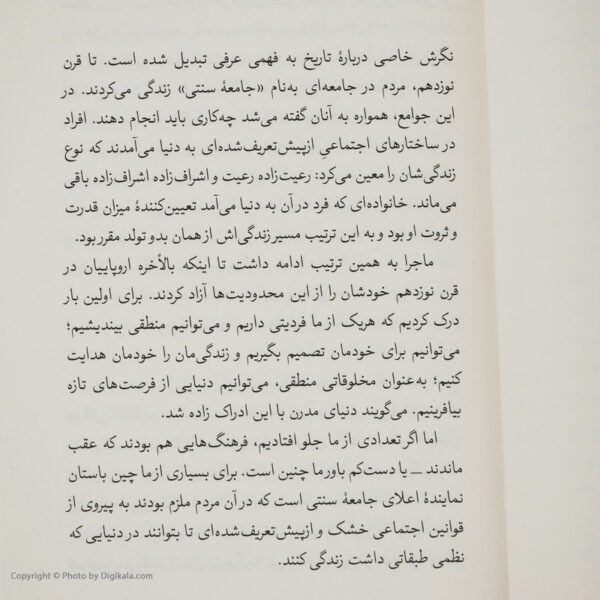 نگرش خاصی دربارهٔ تاریخ به فهمی عرفی تبدیل شده است. تا قرن
نوزدهم، مردم در جامعه‌ای به‌نام «جامعهٔ سنتی» زندگی می‌کردند. در
این جوامع، همواره به آنان گفته می‌شد چه‌کاری باید انجام دهند. افراد
در ساختارهای اجتماعیِ ازپیش‌تعریف‌شده‌ای به دنیا می‌آمدند که نوع
زندگی‌شان را معین می‌کرد: رعیت‌زاده رعیت و اشراف‌زاده اشراف‌زاده باقی
می‌ماند. خانواده‌ای که فرد در آن به دنیا می‌آمد تعیین‌کنندهٔ میزان قدرت
و ثروت او بود و به این ترتیب مسیر زندگی‌اش از همان بدو تولد مقرر بود.
ماجرا به همین ترتیب ادامه داشت تا اینکه بالأخره اروپاییان در
قرن نوزدهم خودشان را از این محدودیت‌ها آزاد کردند. برای اولین بار
درک کردیم که هریک از ما فردیتی داریم و می‌توانیم منطقی بیندیشیم؛
می‌توانیم برای خودمان تصمیم بگیریم و زندگی‌مان را خودمان هدایت
کنیم؛ به‌عنوان مخلوقاتی منطقی، می‌توانیم دنیایی از فرصت‌های تازه
بیافرینیم. می‌گویند دنیای مدرن با این ادراک زاده شد.
اما اگر تعدادی از ما جلو افتادیم، فرهنگ‌هایی هم بودند که عقب
ماندند ــ یا دست‌کم باور ما چنین است. برای بسیاری از ما چین باستان
نمایندهٔ اعلای جامعهٔ سنتی است که در آن مردم ملزم بودند به پیروی از
قوانین اجتماعی خشک و ازپیش‌تعریف‌شده‌ای تا بتوانند در دنیایی که
نظمی طبقاتی داشت زندگی کنند.
Copyright © Photo by Digikala.com